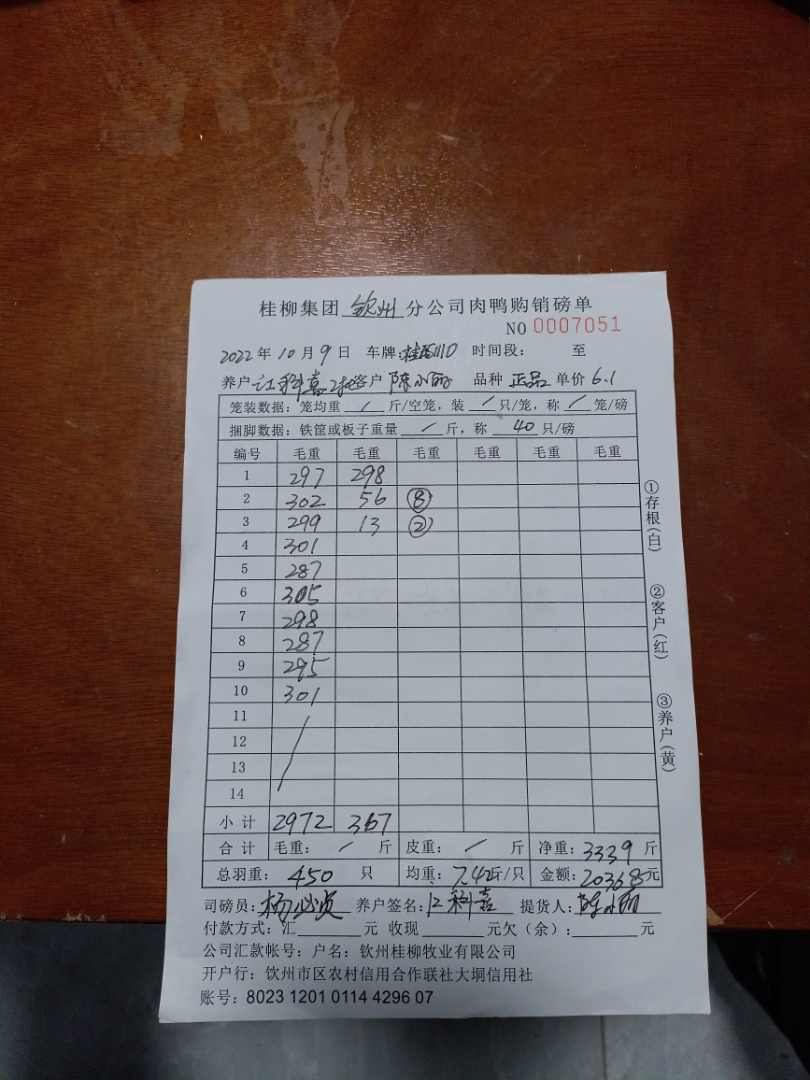 桂柳集团 钦州 分公司肉鸭购销磅单
NO 0007051
2022 年 10 月 9 日 车牌: 时间段: 至
养户 江科嘉 客户 陈小丽 品种 正品 单价 6.1
笼装数据: 笼均重 / 斤/空笼, 装 / 只/笼, 称 / 笼/磅
捆脚数据: 铁筐或板子重量 / 斤, 称 40 只/磅
编号 毛重 毛重 毛重 毛重 毛重 毛重
1 297 298
2 302 56 ⑧
3 299 13 ②
4 301
5 287
6 305
7 298
8 287
9 295
10 301
11
12
13
14
小 计 2972 367
合 计 毛重: / 斤 皮重: / 斤 净重: 3339 斤
总羽重: 450 只 均重: 7.42斤/只 金额: 20368元
司磅员: 养户签名: 江科嘉 提货人: 陈小丽
付款方式: 汇 元 收现 元欠(余): 元
公司汇款帐号: 户名: 钦州桂柳牧业有限公司
开户行: 钦州市区农村信用合作联社大垌信用社
账号: 8023 1201 0114 4296 07
①存根(白)
②客户(红)
③养户(黄)